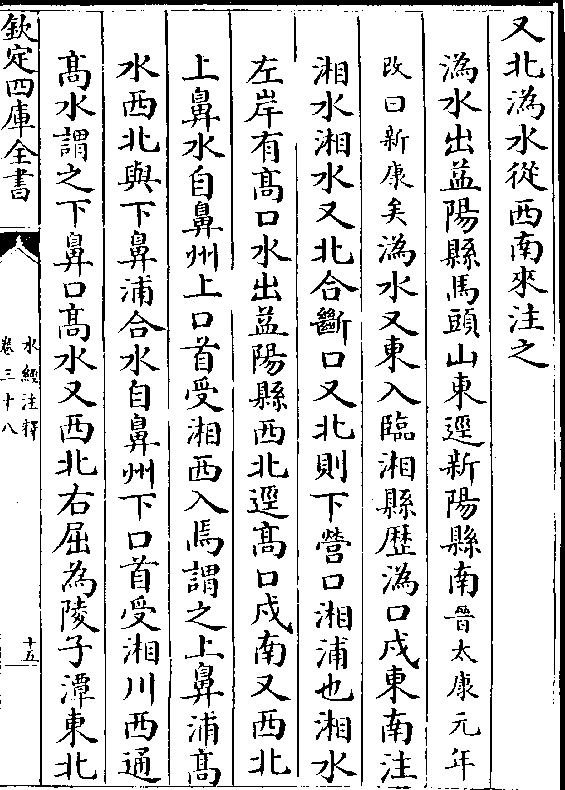 又北溈水從西南來注之
溈水出益陽縣馬頭山東逕新陽縣南晉太康元年
改曰新康矣溈水又東入臨湘縣歷溈口戍東南注
湘水湘水又北合斷口又北則下營口湘浦也湘水
左岸有髙口水出益陽縣西北逕髙口戍南又西北
上鼻水自鼻州上口首受湘西入焉謂之上鼻浦髙
水西北與下鼻浦合水自鼻州下口首受湘川西通
髙水謂之下鼻口髙水又西北右屈為陵子潭東北
欽定四庫全書
水經注釋
卷三十八
十五